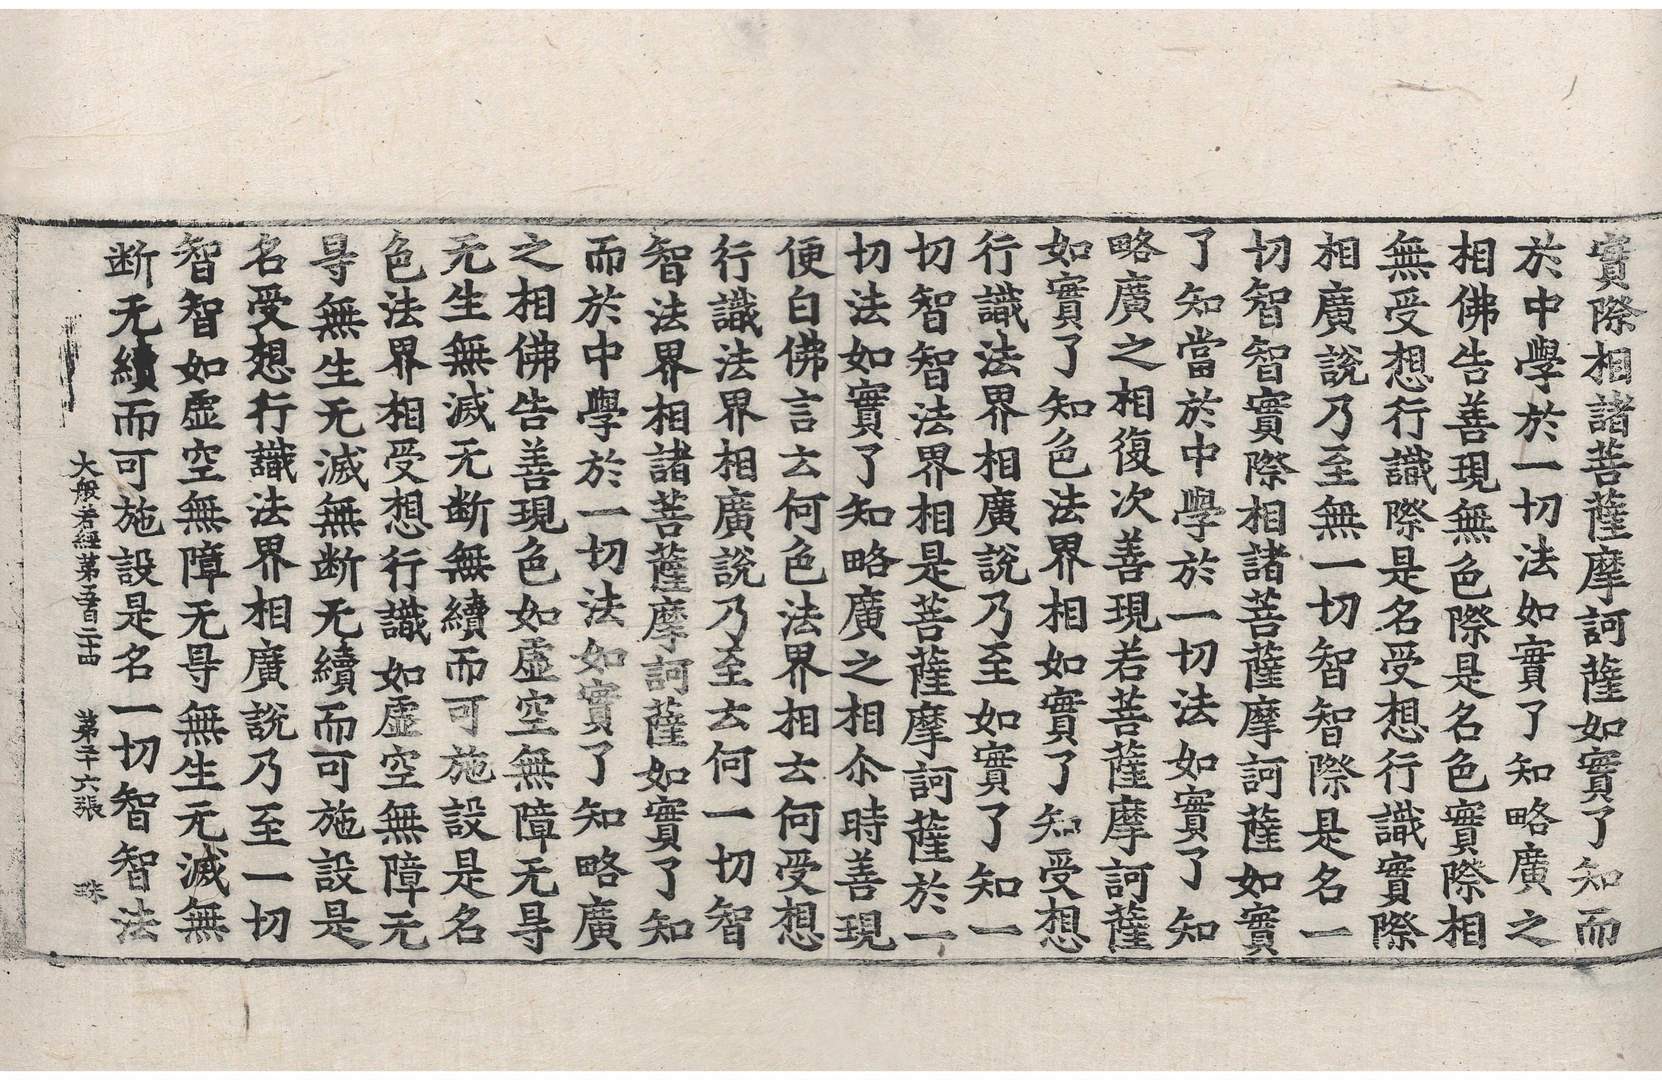 實際相諸菩薩摩訶薩如實了知而
於中學於一切法如實了知略廣之
相佛告善現無色際是名色實際相
無受想行識際是名受想行識實際
相廣說乃至無一切智智際是名一
切智智實際相諸菩薩摩訶薩如實
了知當於中學於一切法如實了知
略廣之相復次善現若菩薩摩訶薩
如實了知色法界相如實了知受想
行識法界相廣說乃至如實了知一
切智智法界相是菩薩摩訶薩於一
切法如實了知略廣之相尒時善現
便白佛言云何色法界相云何受想
行識法界相廣說乃至云何一切智
智法界相諸菩薩摩訶薩如實了知
而於中學於一切法如實了知略廣
之相佛告善現色如虛空無障无㝵
无生無滅无断無續而可施設是名
色法界相受想行識如虛空無障无
㝵無生无滅無断无續而可施設是
名受想行識法界相廣說乃至一切
智智如虛空無障无㝵無生无滅無
断无續而可施設是名一切智智法
大般若經第五百二十四 第二十六張 珠